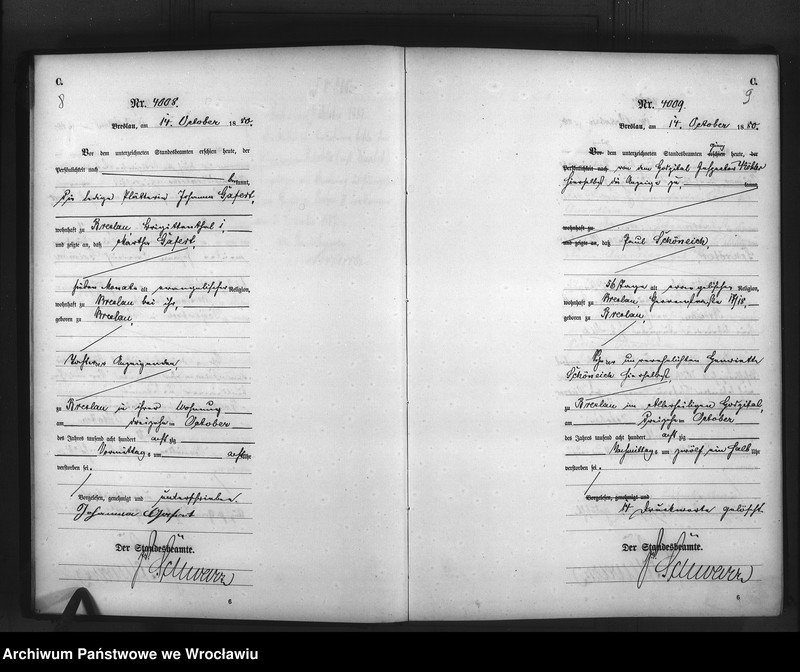 C.
8
Nr. 4008.
Breslau, am 14. October 1880.
Vor dem unterzeichneten Standesbeamten erschien heute, der
Persönlichkeit nach
bekannt,
die ledige Plätterin Johanna Gäfert,
wohnhaft zu Breslau, Brigittenthal 1,
und zeigte an, daß Martha Gäfert,
sieben Monate alt evangelischer Religion,
wohnhaft zu Breslau bei ihr,
geboren zu Breslau,
Tochter der Anzeigenden,
zu Breslau in ihrer Wohnung
am dreizehnten October
des Jahres tausend acht hundert achtzig
Vormittags um acht Uhr
verstorben sei.
Vorgelesen, genehmigt und unterschrieben
Johanna Gäfert
Der Standesbeamte.
Schwarz
6
C.
9
Nr. 4009.
Breslau, am 14. October 1880.
Vor dem unterzeichneten Standesbeamten erschien ging heute, der
Persönlichkeit nach von dem Hospital Inspector
hierselbst die Anzeige zu,
kannt,
wohnhaft zu
und zeigte an, daß Paul Schöneich
56 Tage alt evangelischer Religion,
wohnhaft zu Breslau,
geboren zu Breslau,
Sohn der unverehelichten Henriette
Schöneich hierselbst,
zu Breslau im Allerheiligen Hospital,
am dreizehnten October
des Jahres tausend acht hundert achtzig
Nachmittags um zwölf ein halb Uhr
verstorben sei.
Vorgelesen, genehmigt und
Druckworte gelöscht
Der Standesbeamte.
Schwarz
6
Archiwum Państwowe we Wrocławiu